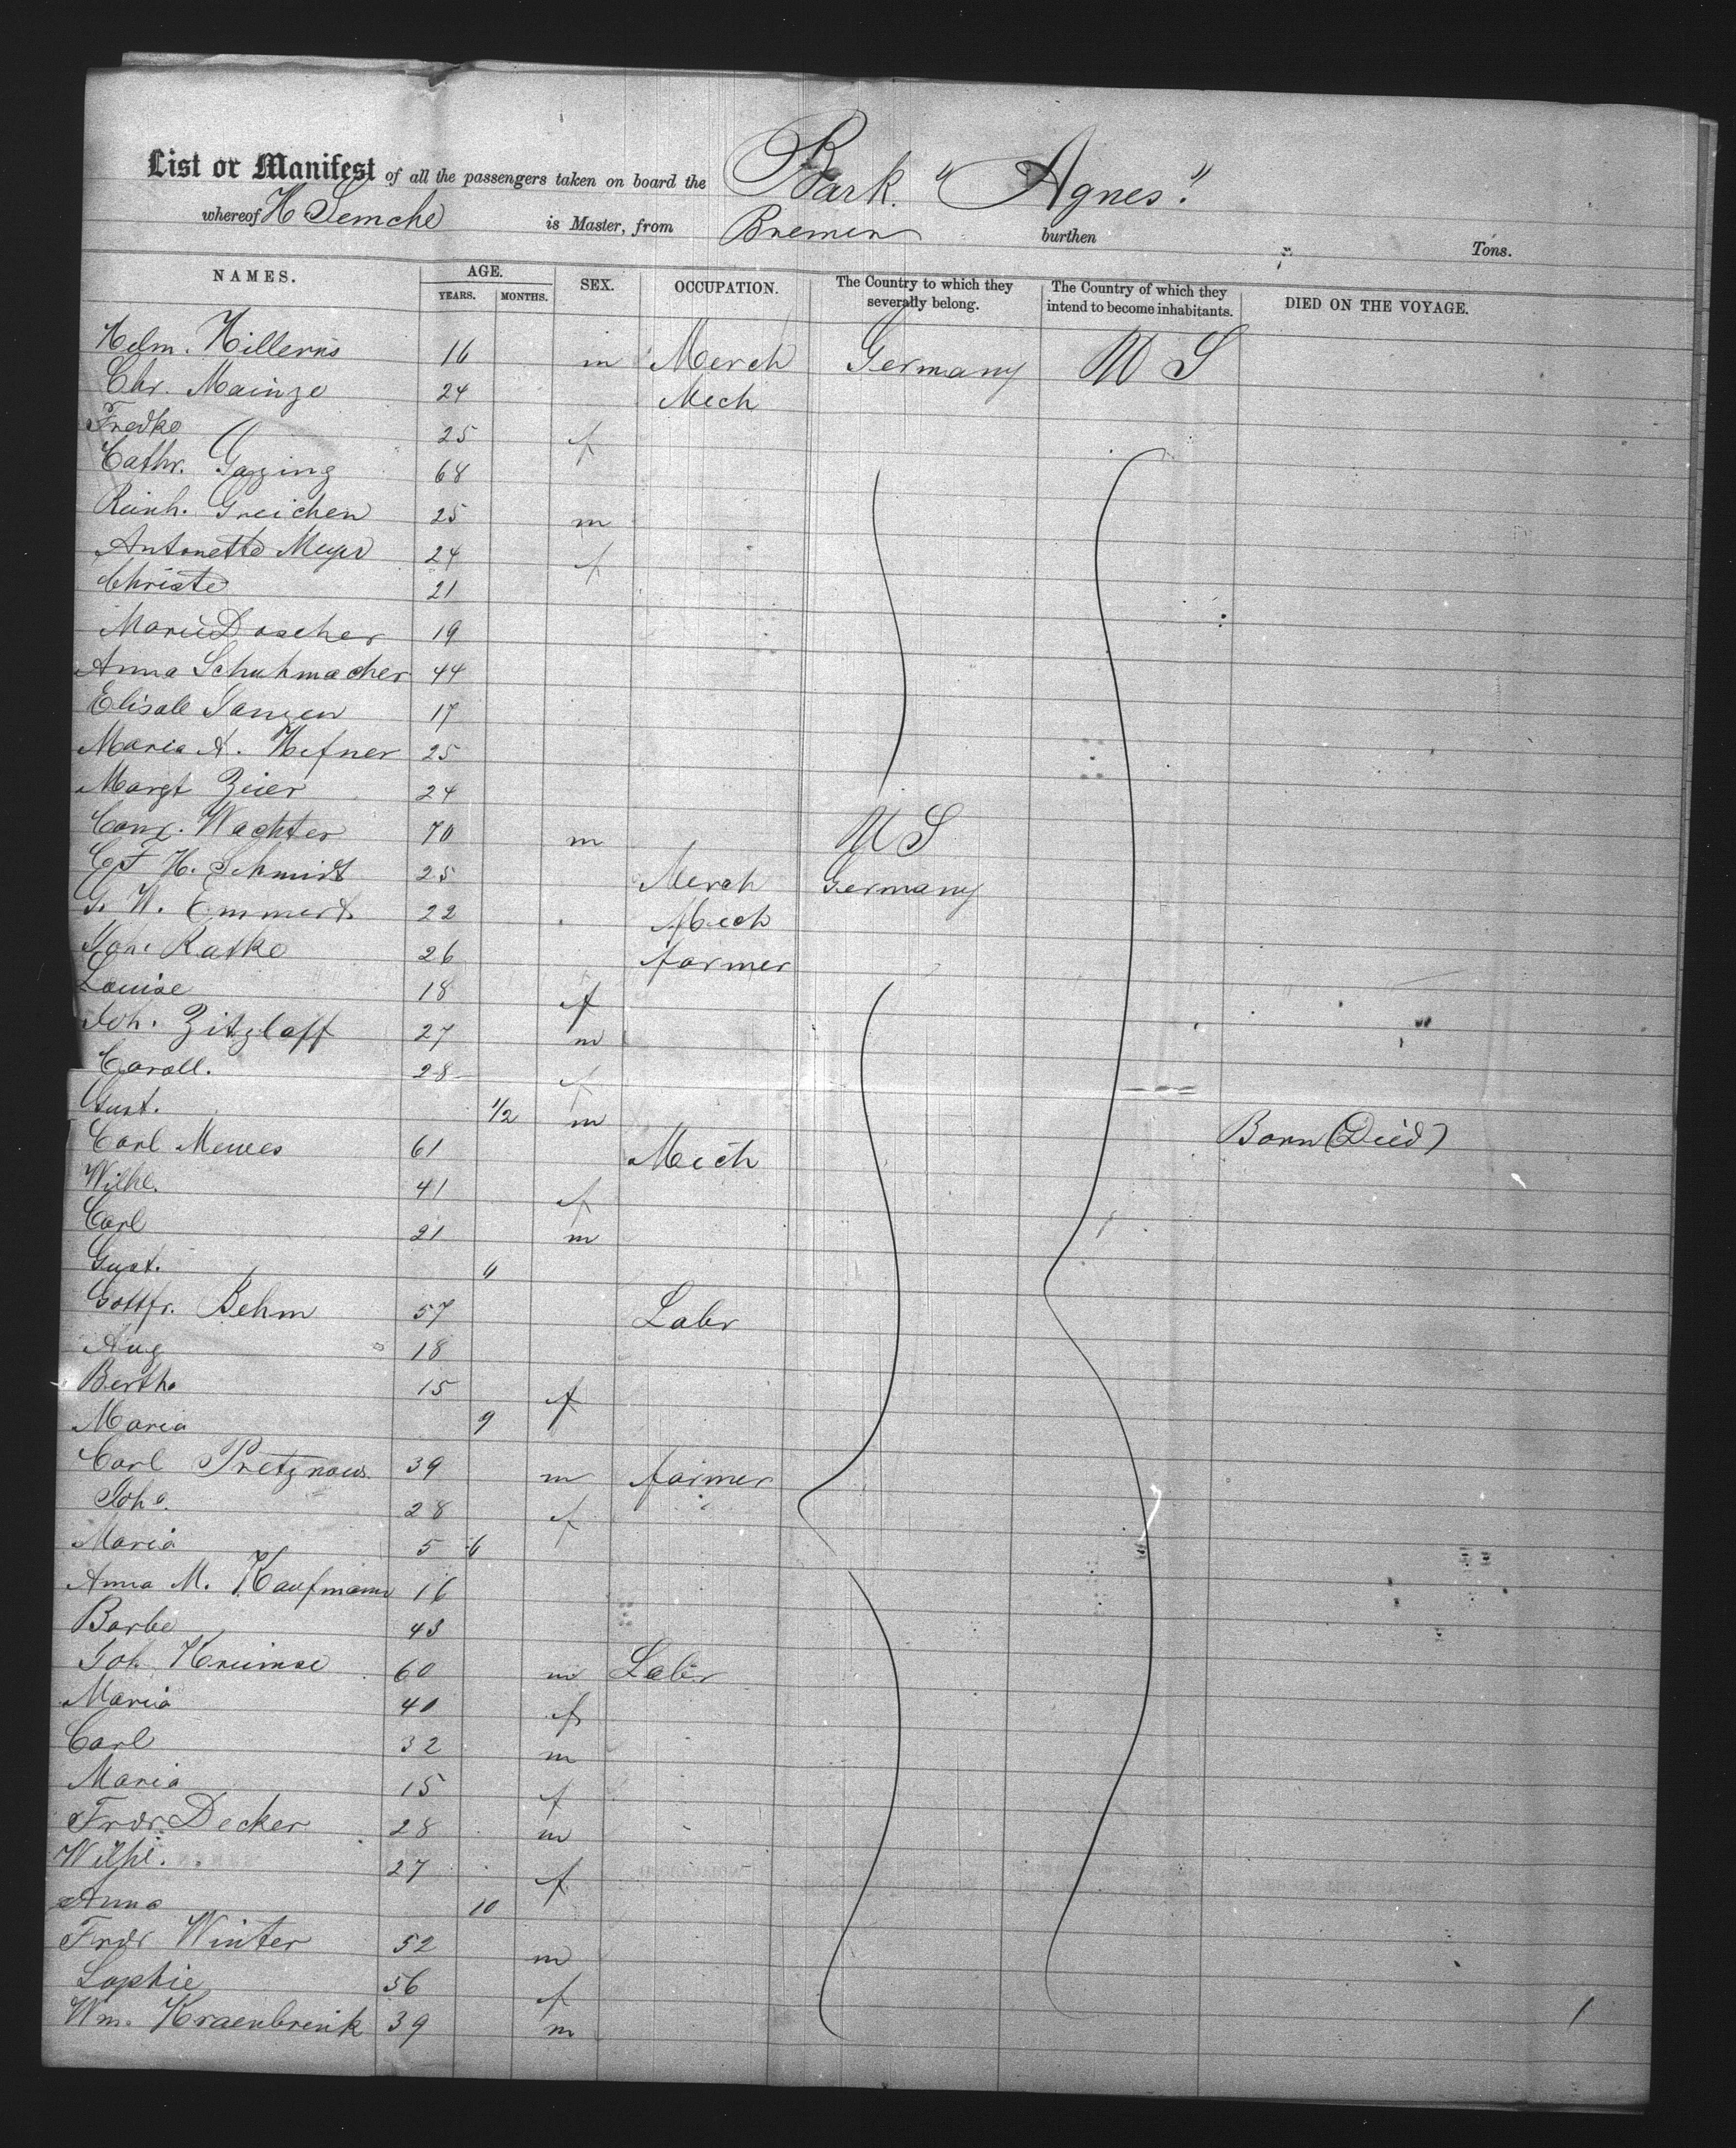 List or Manifest of all the passengers taken on board the Bark "Agnes"
whereof H Semche is Master, from Bremen burthen Tons.
NAMES. AGE. YEARS. MONTHS. SEX. OCCUPATION. The Country to which they severally belong. The Country of which they intend to become inhabitants. DIED ON THE VOYAGE.
Helm. Hillerns 16 m Merch Germany U S
Chr. Mainze 24 Mech
Fredke 25 f
Cathr. 68
Reinh. Greichen 25 m
Antonette Meyer 24 f
Christe 21
Marie Doscher 19
Anna Schuhmacher 44
Elisab Tanzen 17
Maria A. Hefner 25
Margt Zeier 24
Conr. Wachter 70 m U S
C. F. H. Schmidt 25 Merch Germany
G. W. Emmert 22 Mech
Joh. Ratke 26 farmer
Louise 18 f
Joh. Zitzlaff 27 m
Caroll. 28 f
Gust. 1/2 m Born (Died)
Carl Mewes 61 Mech
Wilhe. 41 f
Carl 21 m
Gust. 6
Gottfr. Behm 57 Labr
Aug 18
Bertha 15 f
Maria 9
Carl Pretznow 39 m farmer
Joha. 28 f
Maria 5 6
Anna M. Kaufmann 16
Barbe 43
Joh. Kruimse 60 m Labr
Maria 40 f
Carl 32 m
Maria 15 f
Frdr. Decker 28 m
Wilhe. 27 f
Anna 10
Frdr Winter 52 m
Sophie 56 f
Wm. Kraenbrink 39 m
1